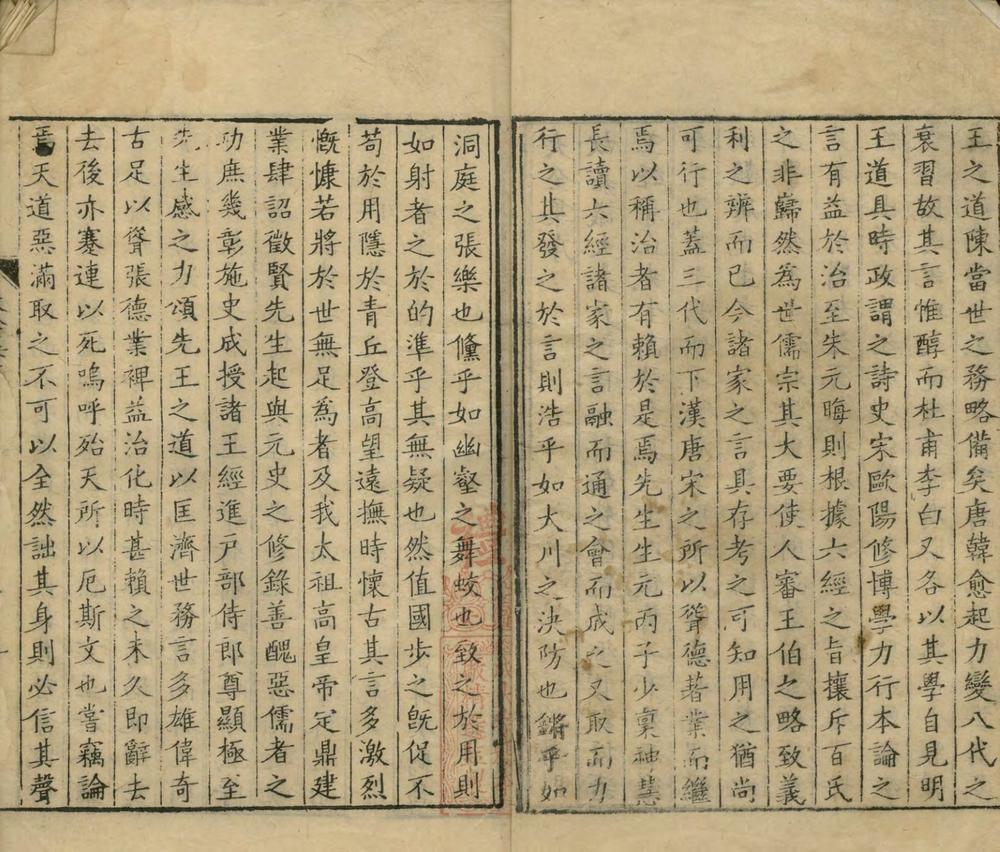 王之道陳當世之務略備矣唐韓愈起力變八代之
衰習故其言惟醇而杜甫李白又各以其學自見明
王道具時政謂之詩史宋歐陽修博學力行本論之
言有益於治至朱元晦則根據六經之旨攘斥百氏
之非巋然為世儒宗其大要使人審王伯之略致義
利之辨而已今諸家之言具存考之可知用之猶尚
可行也蓋三代而下漢唐宋之所以聲德著業而繼
焉以稱治者有賴於是焉先生生元丙子少稟神慧
長讀六經諸家之言融而通之會而成之又取而力
行之其發之於言則浩乎如大川之決防也鏘乎如
洞庭之張樂也儵乎如幽壑之舞蛟也致之於用則
如射者之於的準乎其無疑也然值國步之旣促不
苟於用隱於青丘登高望遠撫時懷古其言多激烈
慨慷若將於世無足為者及我太祖高皇帝定鼎建
業肆詔徵賢先生起與元史之修錄善醜惡儒者之
功庶幾彰施史成授諸王經進戸部侍郎尊顯極至
先生感之力頌先王之道以匡濟世務言多雄偉奇
古足以聳張德業裨益治化時甚賴之未久即辭去
去後亦蹇連以死嗚呼殆天所以厄斯文也嘗竊論
焉天道惡滿取之不可以全然詘其身則必信其聲